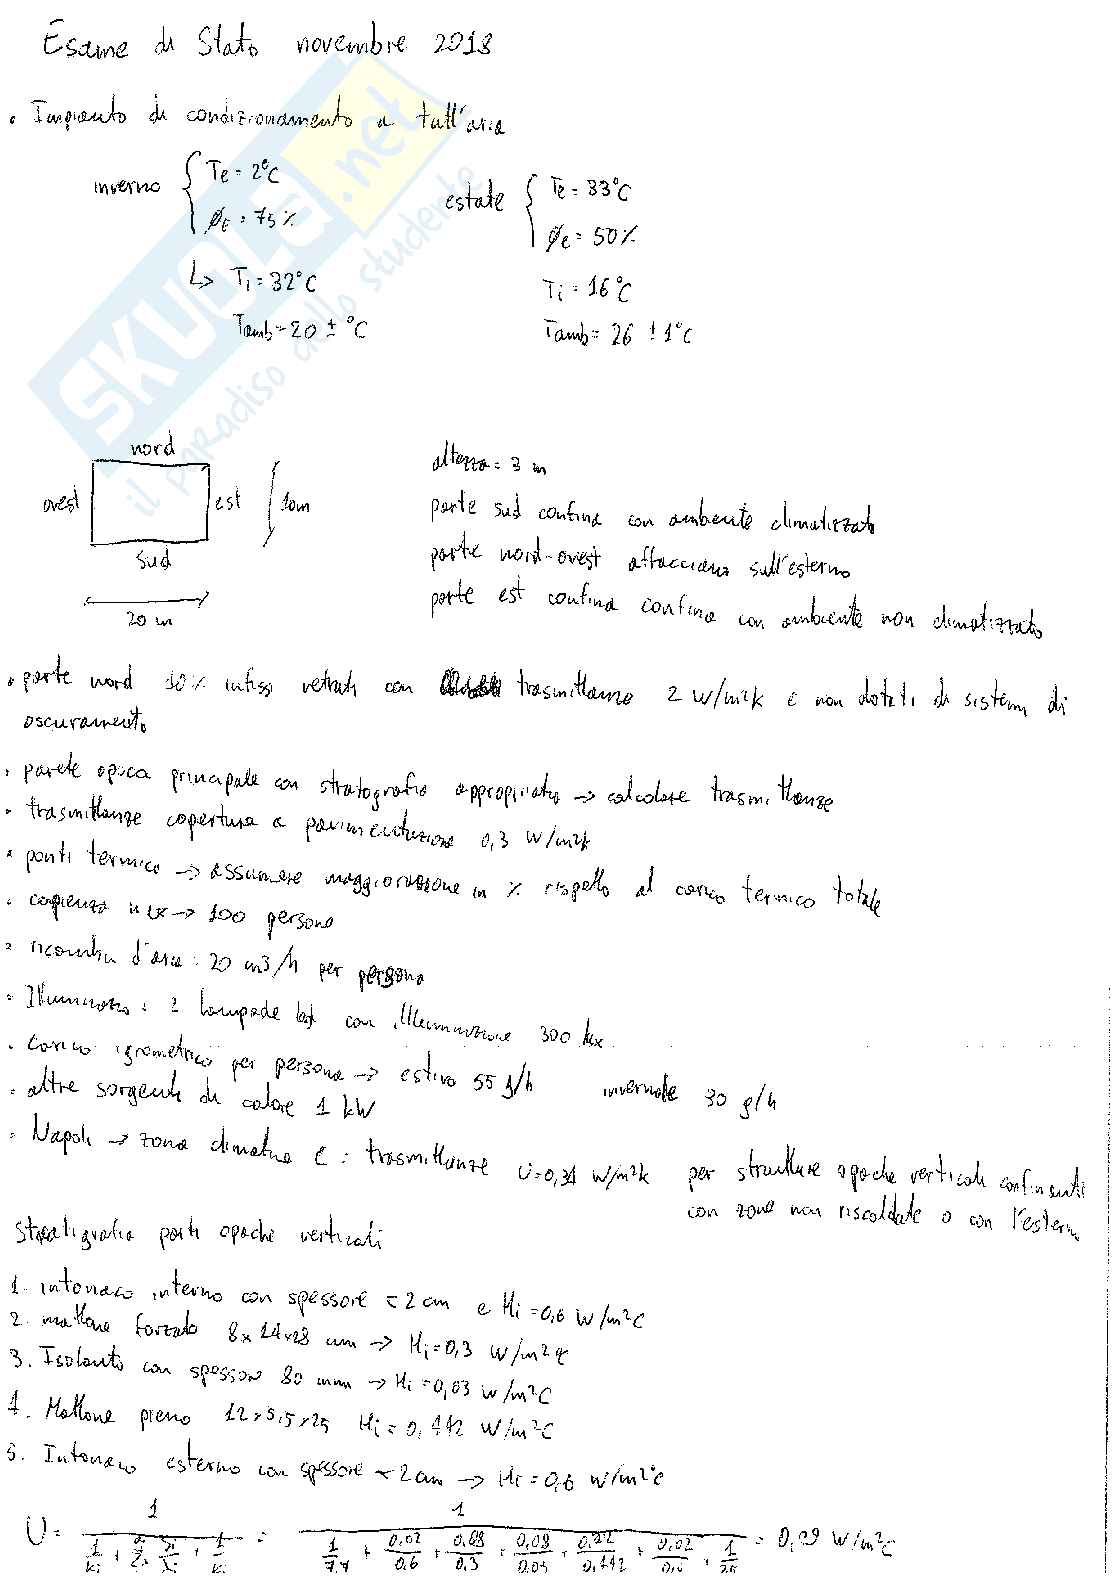 Esame di Stato novembre 2018
• Impianto di condizionamento a tutt'aria
inverno { Te = 2°C
φe = 75 %
↳ Ti = 32°C
Tamb = 20 ± °C
estate { Te = 33°C
φe = 50 %
Ti = 16°C
Tamb = 26 ± 1°C
SKUOLA.net
il paradiso dello studente
nord
ovest
est
10 m
sud
20 m
altezza = 3 m
parte sud confina con ambiente climatizzato
parte nord-ovest affacciano sull'esterno
parte est confina confina con ambiente non climatizzato
• parte nord 10 % infissi vetrati con trasmittanza 2 W/m²k e non dotati di sistemi di
oscuramento
• parete opaca principale con stratografia appropriata → calcolare trasmittanze
• trasmittanze copertura a pavimentazione 0,3 W/m²k
• ponti termico → assumere maggiorazione in % rispetto al carico termico totale
• capienza → 100 persone
• ricambi d'aria : 20 m3/h per persona
• Illuminazio : 2 lampade led con illuminazione 300 lux
• Carico igrometrico per persona → estivo 55 g/h invernale 30 g/h
• altre sorgenti di calore 1 kW
• Napoli → zona climatica C : trasmittanze U = 0,34 W/m²k per strutture opache verticali confinanti
con zone non riscaldate o con l'esterno
Stratigrafia parti opache verticali
1. intonaco interno con spessore = 2 cm e Hi = 0,6 W/m²C
2. mattone forzato 8 x 14 x 28 cm → Hi = 0,3 W/m²C
3. Isolanto con spessore 80 mm → Hi = 0,03 W/m²C
4. Mattone pieno 12 x 5,5 x 25 Hi = 0,442 W/m²C
5. Intonaco esterno con spessore = 2 cm → Hi = 0,6 W/m²°C
U = 1 / = 1 / (1/7,7 + 0,02/0,6 + 0,08/0,3 + 0,08/0,03 + 0,12/0,442 + 0,02/0,6 + 1/25) = 0,29 W/m²C